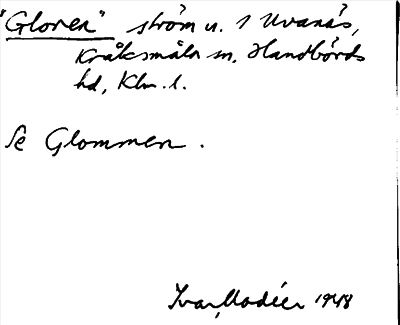 "Gloven" ström u. 1 Uvanäs,
Kråksmåla sn, Handbörds
hd, Klm. l.
Se Glommen.
Ivar Modéer 1948